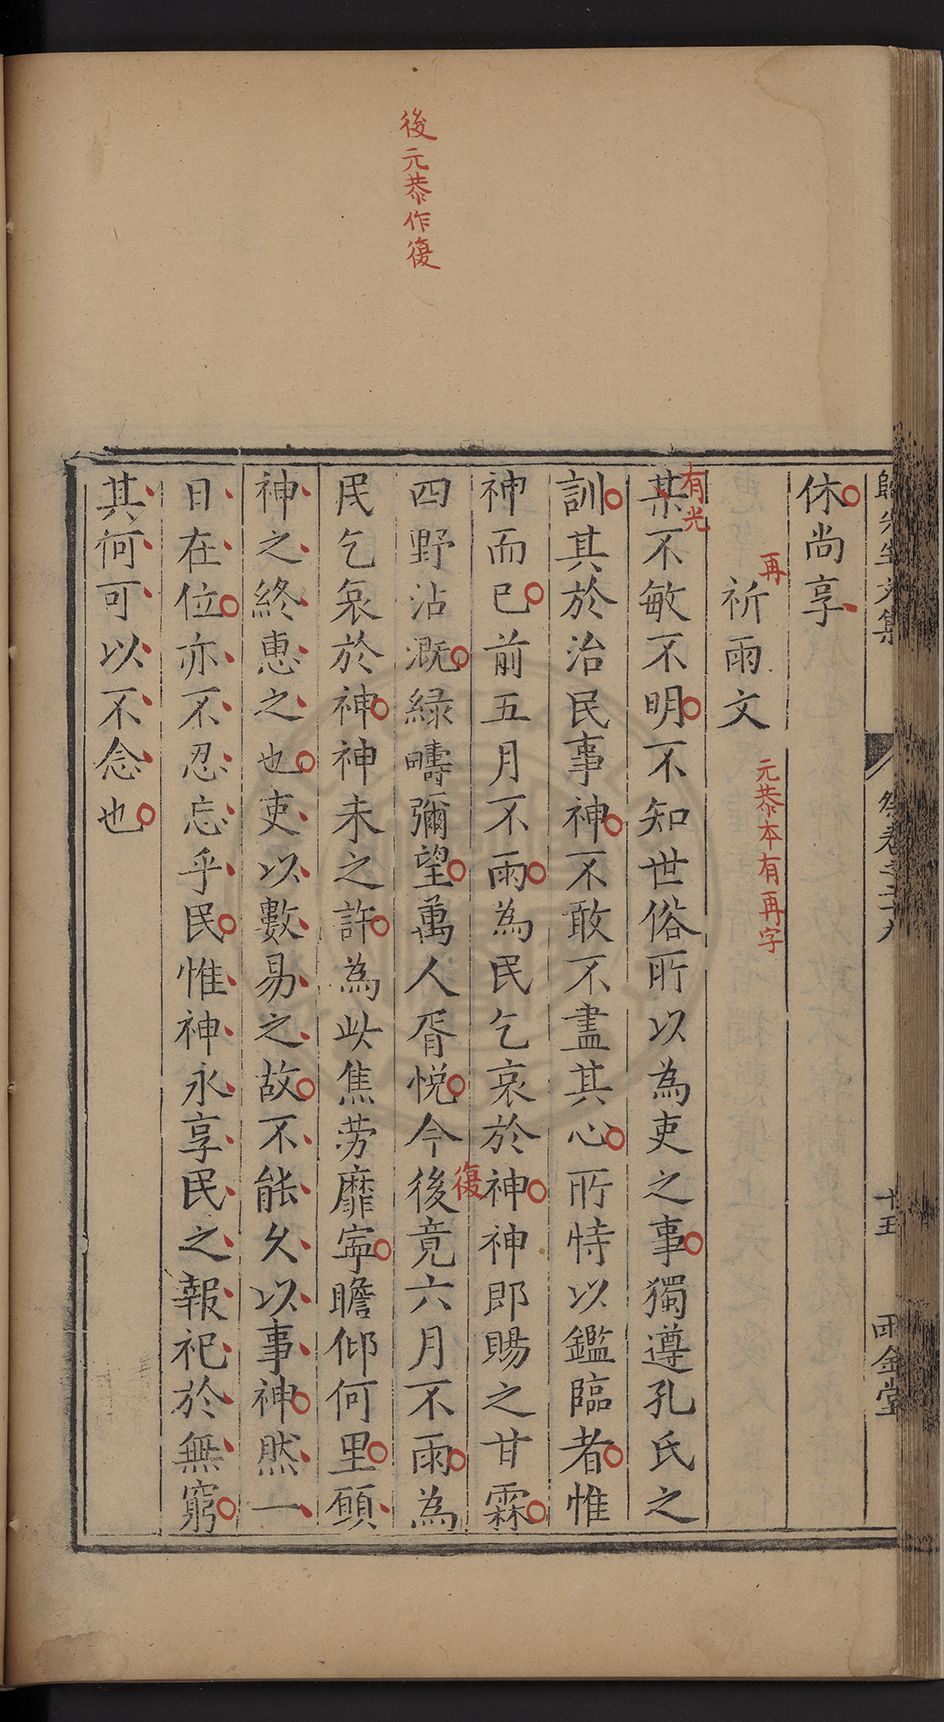 歸先生文集
卷之二十九
十五
雨金堂
休尚享
再
祈雨文
元恭本有再字
有光
某不敏不明不知世俗所以為吏之事獨遵孔氏之
訓其於治民事神不敢不盡其心所恃以鑑臨者惟
神而已前五月不雨為民乞哀於神神即賜之甘霖
後元恭作復
復
四野沾溉綠疇彌望萬人胥悅今後竟六月不雨為
民乞哀於神神未之許為此焦勞靡寧瞻仰何里願
神之終惠之也吏以數易之故不能久以事神然一
日在位亦不忍忘乎民惟神永享民之報祀於無窮
其何可以不念也